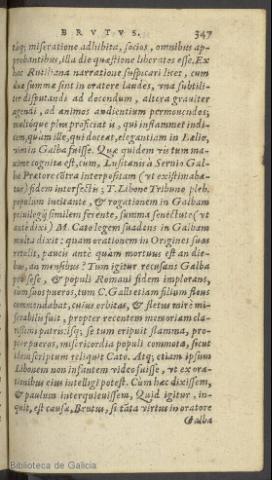 BRVTVS. 347
tùq; miseratione adhibita, socios, omnibus ap-
probantibus, illa die quæstione liberatos esse. Ex
hac Rutiliana narratione suspicari licet, cum
duæ summæ sint in oratore laudes, vna subtili-
ter disputandi ad docendum, altera grauiter
agendi, ad animos audientium permouendos;
multóque plus proficiat is, qui inflammet iudi-
cem, quàm ille, qui doceat, elegantiam in Lælio,
vim in Galba fuisse. Quæ quidem vis tum ma-
ximè cognita est, cum, Lusitanis à Seruio Gal-
ba Prætore cōtra interpositam (vt existimaba-
tur) fidem interfectis; T. Libone Tribuno pleb.
populum incitante, & rogationem in Galbam
priuilegij similem ferente, summa senectute (vt
antè dixi) M. Cato legem suadens in Galbam
multa dixit: quam orationem in Origines suas
retulit, paucis antè quàm mortuus est an die-
bus, an mensibus? Tum igitur recusans Galba
pro sese, & populi Romani fidem implorans,
cum suos pueros, tum C. Galli etiam filium flens
commendabat, cuius orbitas, & fletus mirè mi-
serabilis fuit, propter recentem memoriam cla-
rissimi patris: isq; se tum eripuit flamma, pro-
pter pueros, misericordia populi commota, sicut
idem scriptum reliquit Cato. Atq; etiam ipsum
Libonem non infantem video fuisse, vt ex ora-
tionibus eius intelligi potest. Cùm hæc dixissem,
& paulum interquieuissem, Quid igitur, in-
quit, est causæ, Brutus, si tāta virtus in oratore
Galba
Biblioteca de Galicia